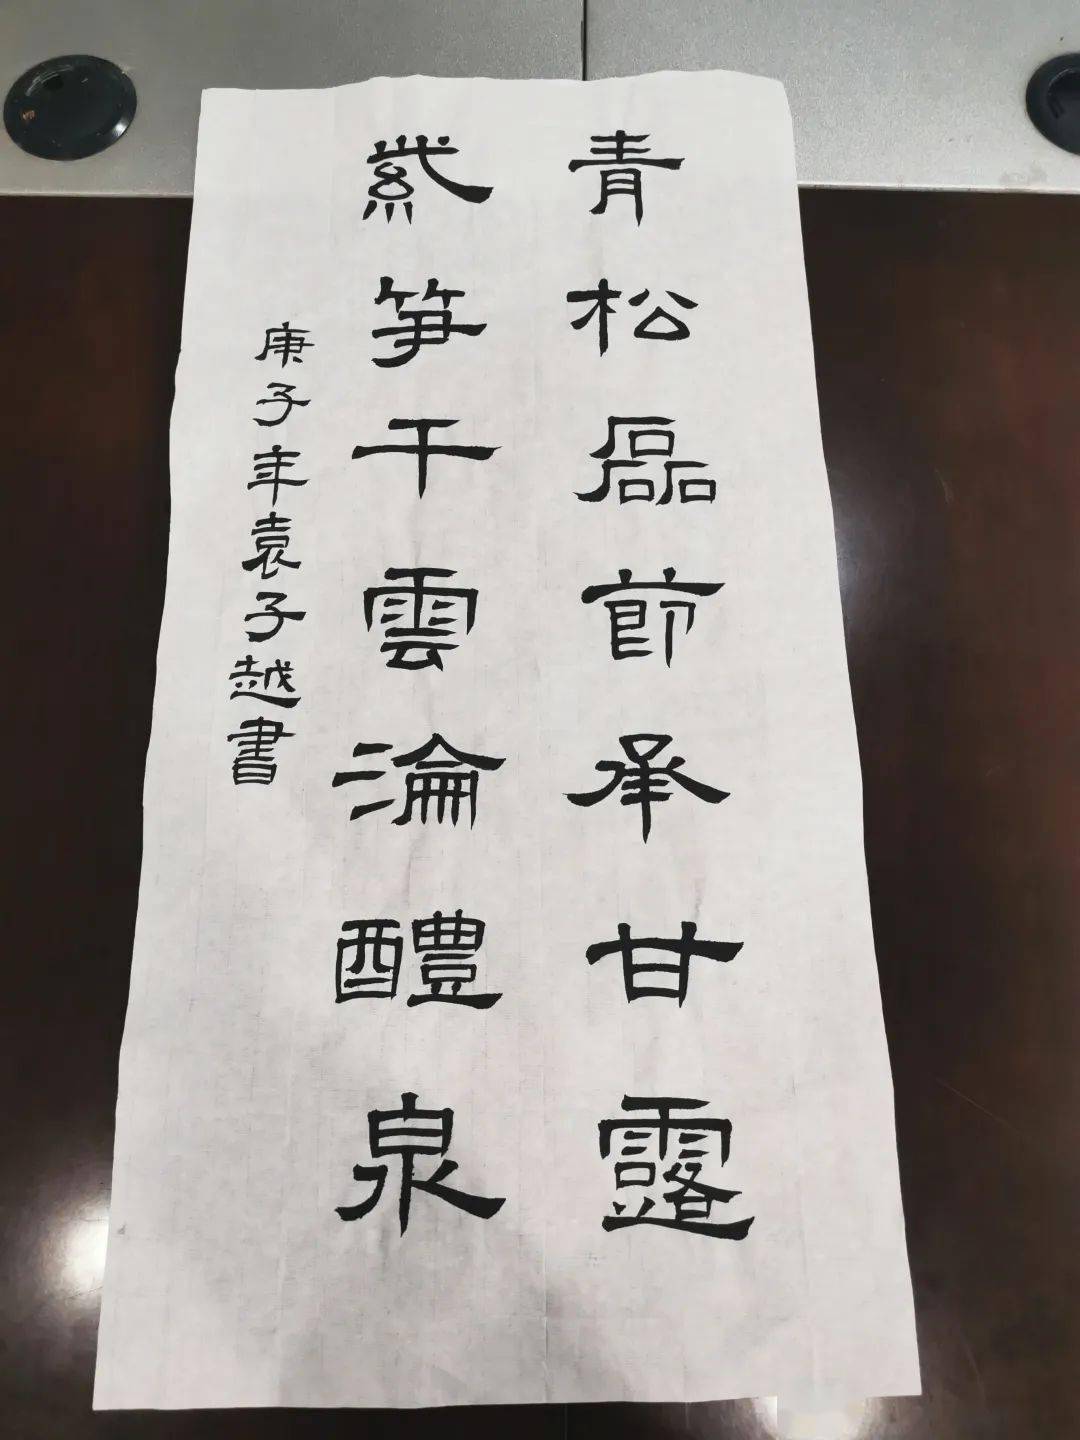 青松磊節承甘露
紫笋干雲瀹醴泉
庚子年袁子越書